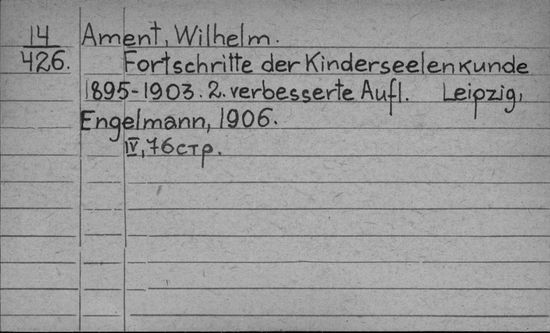 14 Ament, Wilhelm.
426. Fortschritte der Kinderseelenkunde
1895-1903. 2. verbesserte Aufl. Leipzig,
Engelmann, 1906.
IV, 76 стр.